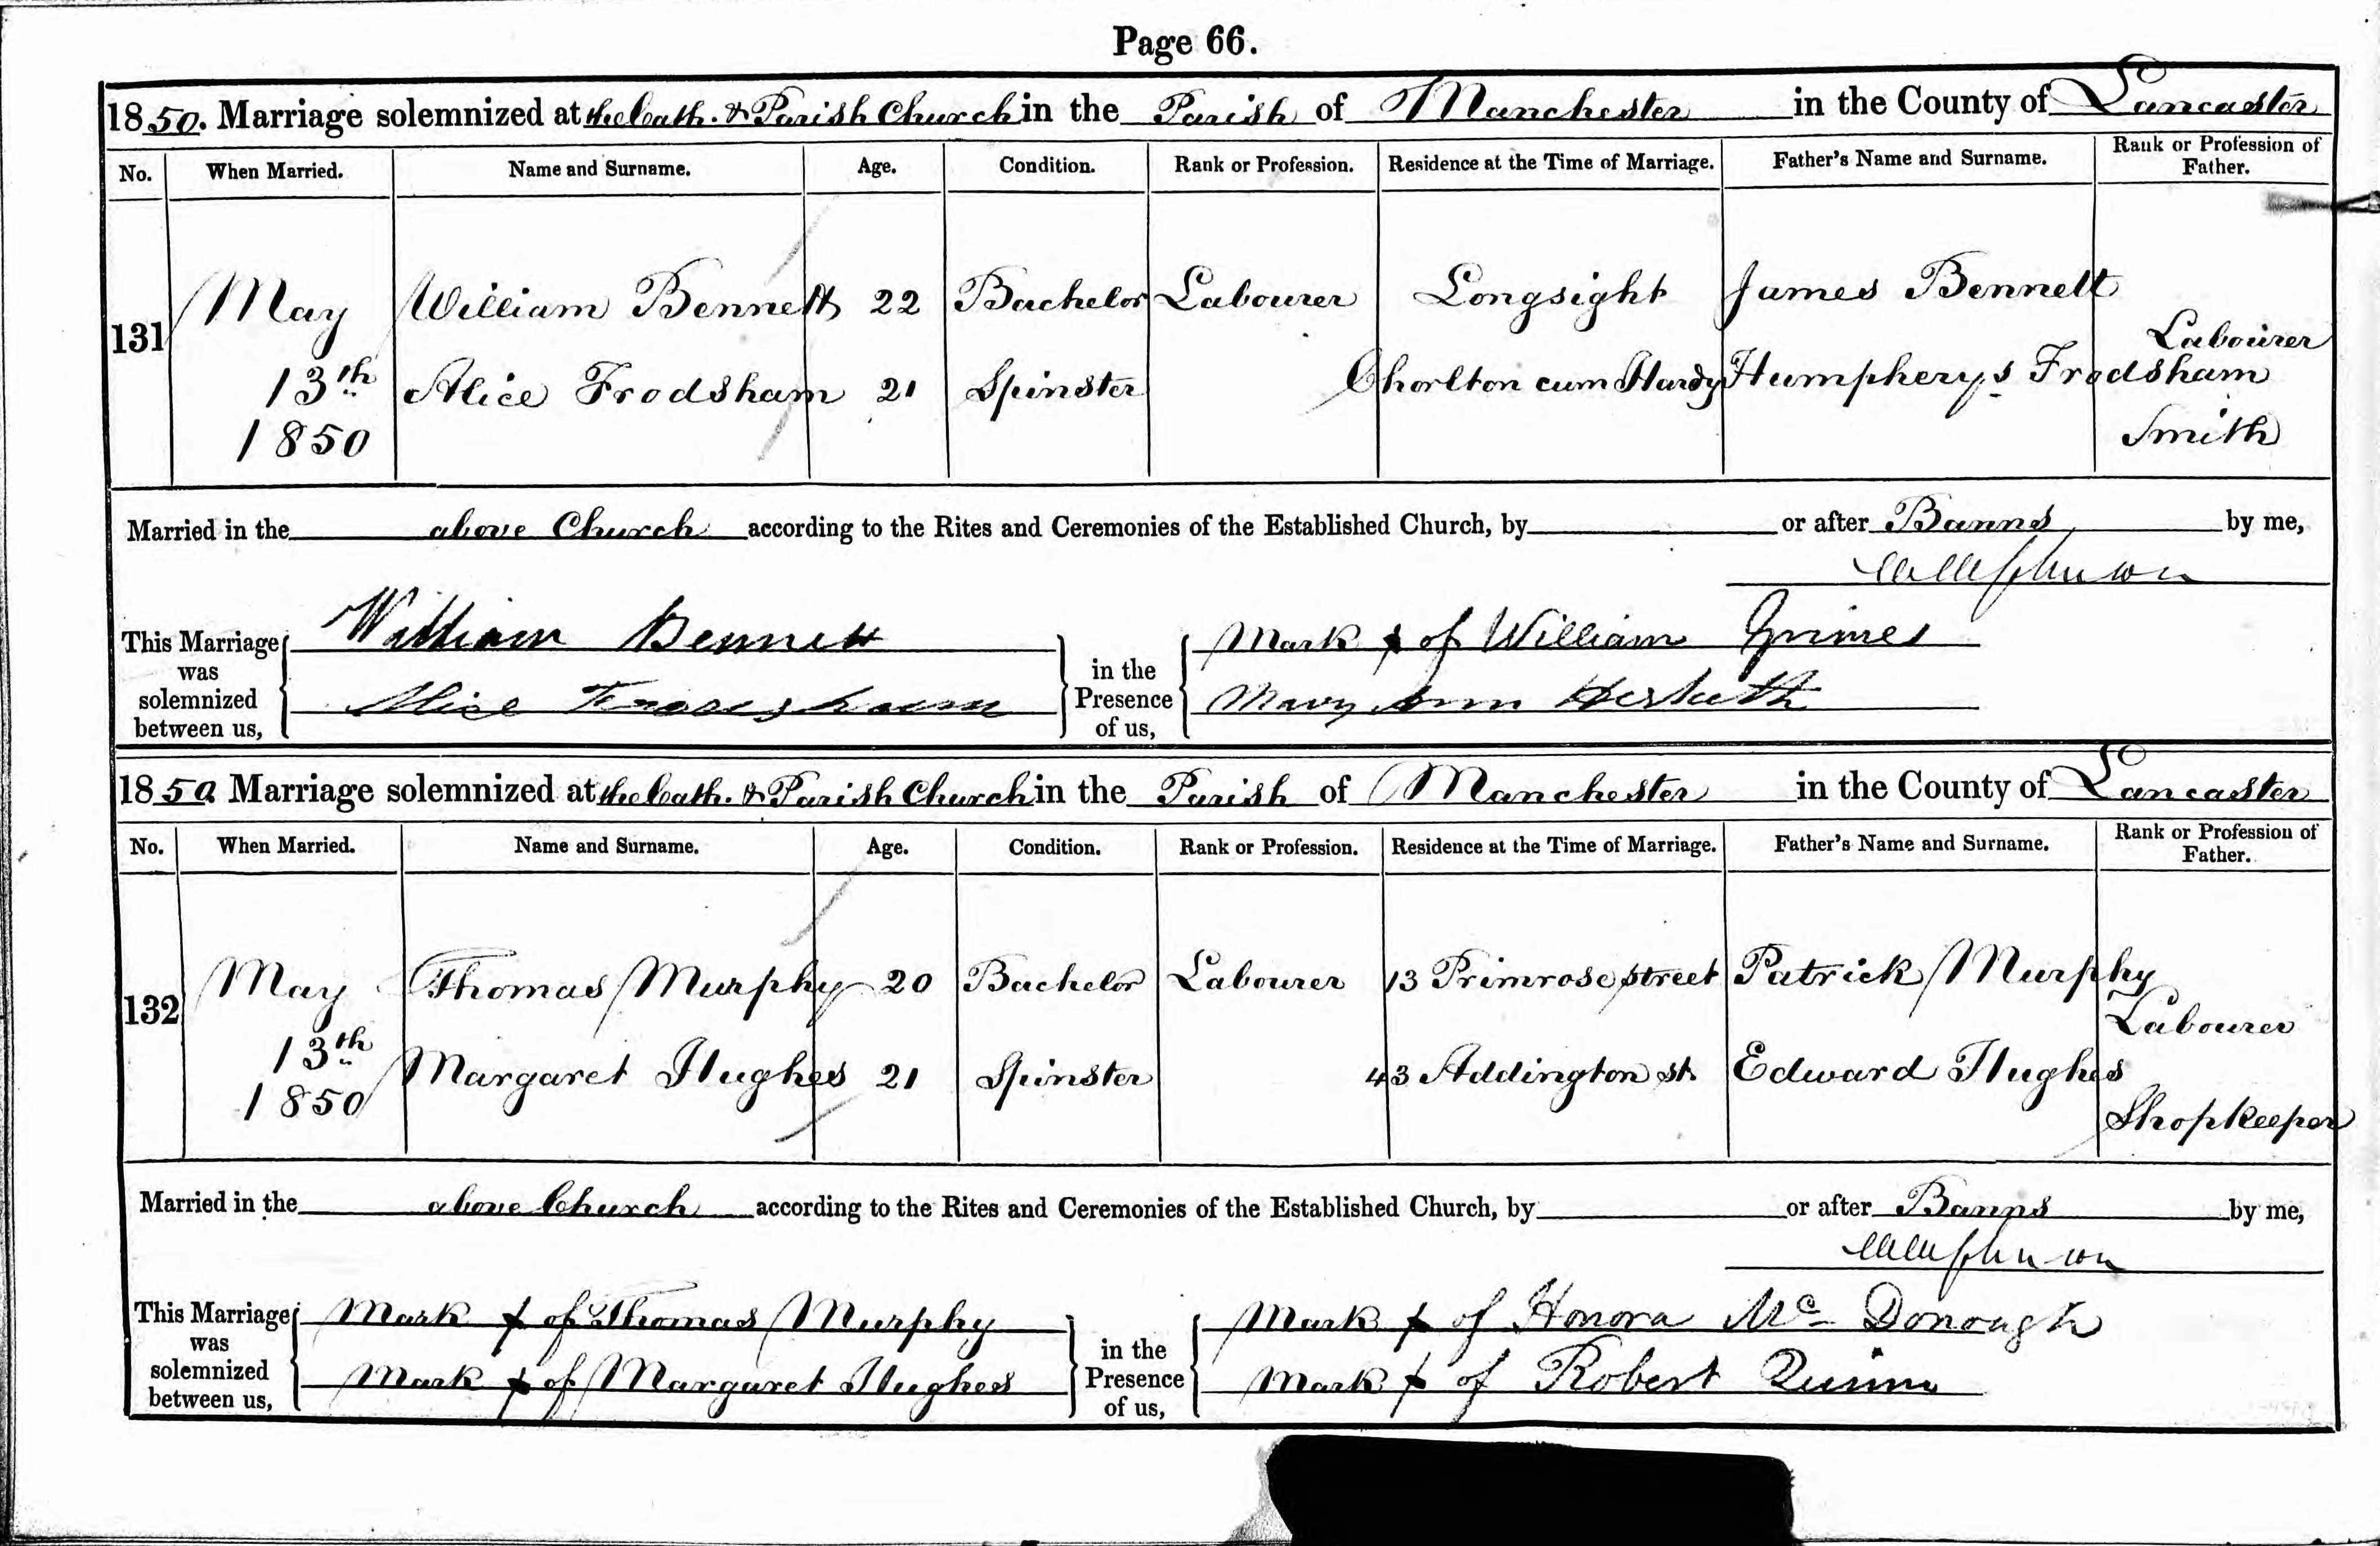 Page 66.
1850. Marriage solemnized at the Cath. & Parish Church in the Parish of Manchester in the County of Lancaster
No. When Married. Name and Surname. Age. Condition. Rank or Profession. Residence at the Time of Marriage. Father's Name and Surname. Rank or Profession of Father.
131 May 13th 1850
William Bennett 22 Bachelor Labourer Longsight James Bennett Labourer
Alice Frodsham 21 Spinster Chorlton cum Hardy Humpherys Frodsham Smith
Married in the above Church according to the Rites and Ceremonies of the Established Church, by or after Banns by me,
This Marriage was solemnized between us,
William Bennett
Alice
in the Presence of us,
Mark x of William Grimes
Mary Ann
1850 Marriage solemnized at the Cath. & Parish Church in the Parish of Manchester in the County of Lancaster
No. When Married. Name and Surname. Age. Condition. Rank or Profession. Residence at the Time of Marriage. Father's Name and Surname. Rank or Profession of Father.
132 May 13th 1850
Thomas Murphy 20 Bachelor Labourer 13 Primrose street Patrick Murphy Labourer
Margaret Hughes 21 Spinster 43 Addington st. Edward Hughes Shopkeeper
Married in the above Church according to the Rites and Ceremonies of the Established Church, by or after Banns by me,
This Marriage was solemnized between us,
Mark x of Thomas Murphy
Mark x of Margaret Hughes
in the Presence of us,
Mark x of Honora Mc Donough
Mark x of Robert Quinn